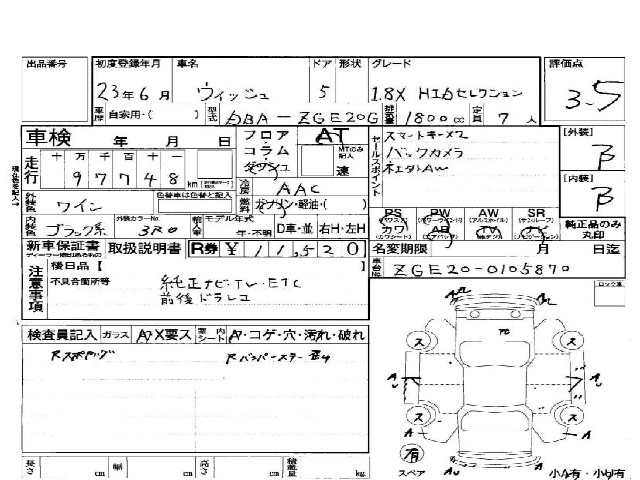 出品番号 初度登録年月 車名 ドア 形状 グレード 評価点
23年6月 ウィッシュ 5 1.8X HIDセレクション 3.5
車歴 自家用・( ) 型式 DBA-ZGE20G 排気量 1800cc 定員 7人
車検 年 月 日 フロア AT セールスポイント スマートキー×2 [外装] B
走行 十万千百十一 97748km コラム MTのみ記入 速 バックカメラ
冷房 AAC 社外AW [内装] B
外装色 ワイン 色替車は色替と記入 燃料 ガソリン・軽油・( )
内装色 ブラック系 外装カラーNo. 3R0 輸入車 モデル年式 年・不明 D車・並 右H・左H
PS PW AW SR
カワ AB TV 純正品のみ丸印
新車保証書 取扱説明書 R券 ¥11,520 名変期限 月 日迄
注意事項 後日品【 】 車台No. ZGE20-0105870
不具合箇所等 純正ナビ・TV・ETC
前後ドラレコ
検査員記入 ガラス A・X要ス 室内シート A・コゲ・穴・汚れ・破れ
ス ス
A A
ス ス
A A
有
スペア
長さ cm 幅 cm 高さ cm 積載量 kg 小A有・小U有